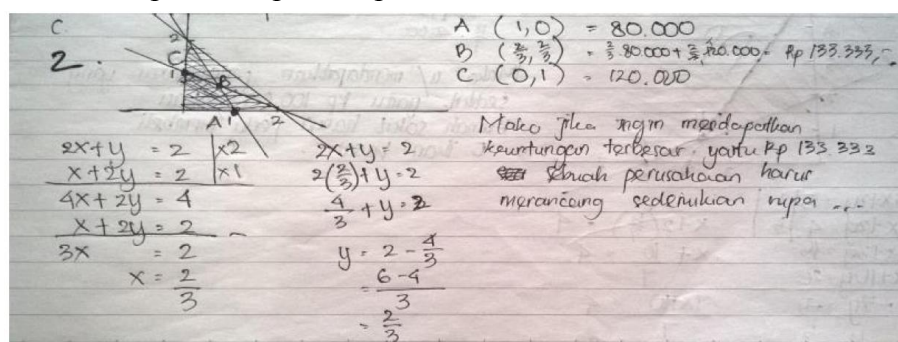 C.
2.
2
C
1
B
A 1 2
2x+y = 2 | x2
x+2y = 2 | x1
4x+2y = 4
x+2y = 2 -
3x = 2
x = 2/3
2x+y = 2
2(2/3)+y = 2
4/3 + y = 2
y = 2 - 4/3
= 6-4/3
= 2/3
A (1,0) = 80.000
B (2/3, 2/3) = 2/3 80.000 + 2/3 120.000 = Rp 133.333,-
C (0,1) = 120.000
Maka jika ingin mendapatkan
keuntungan terbesar yaitu Rp 133.333
sebuah perusahaan harus
merancang sedemikian rupa ...